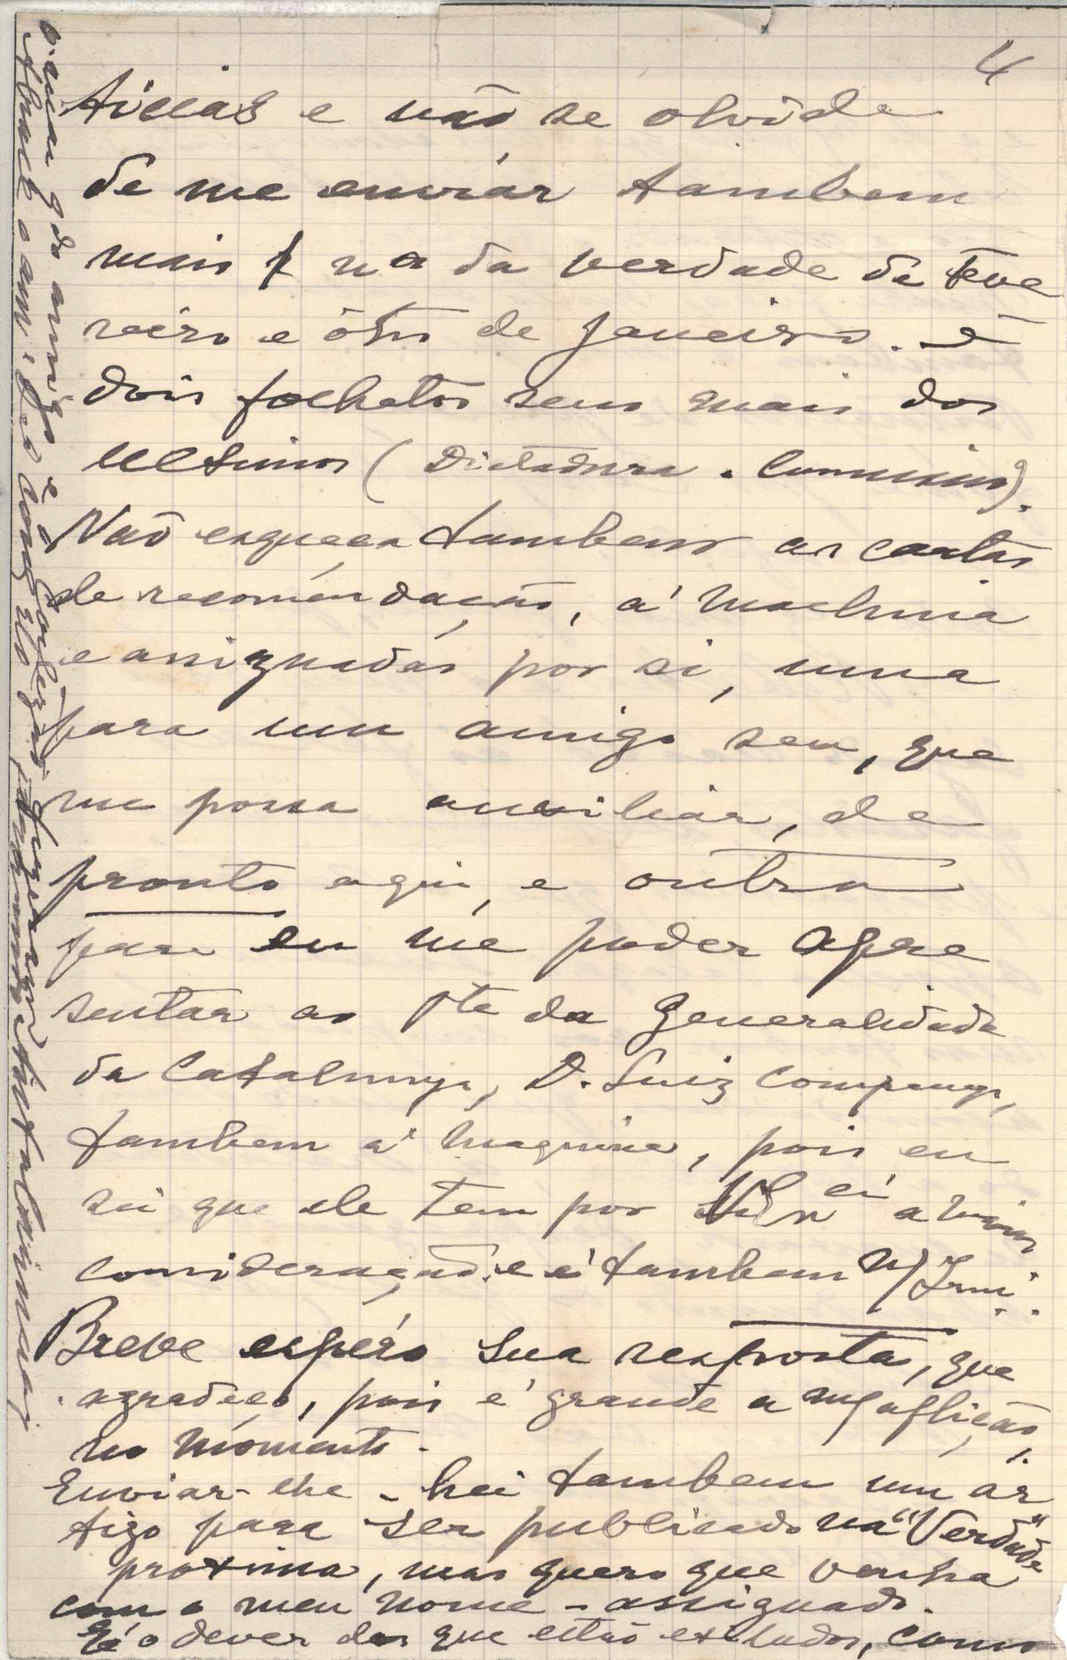 4
ticias e não se olvide
de me enviár tambem
mais 1 nº da verdade de Feve
reiro e ôtro de Janeiro. E
dois folhetos seus mais dos
ultimos (Dictadura.
Não esqueça tambem as cartas
de recoméndação, á machina
e assignadas por si, uma
para um amigo seu, que
me possa auxiliár, de
pronto aqui, e outra
para eu me poder apre
sentar ao Pte da Generalidade
da Catalunya, D. Luiz Companys,
tambem á maquina, pois eu
sei que ele tem por a maior
consideração. e é tambem n/ Irm∴
Breve espéro sua resposta, que
agradeço, pois é grande a m/ aflição,
no momento.
Enviar-lhe-hei tambem um ár
tigo para ser publicado na "Verdade"
proxima, mas quero que venha
com o meu nome - assignado.
É o dever dos que estão exilados, como